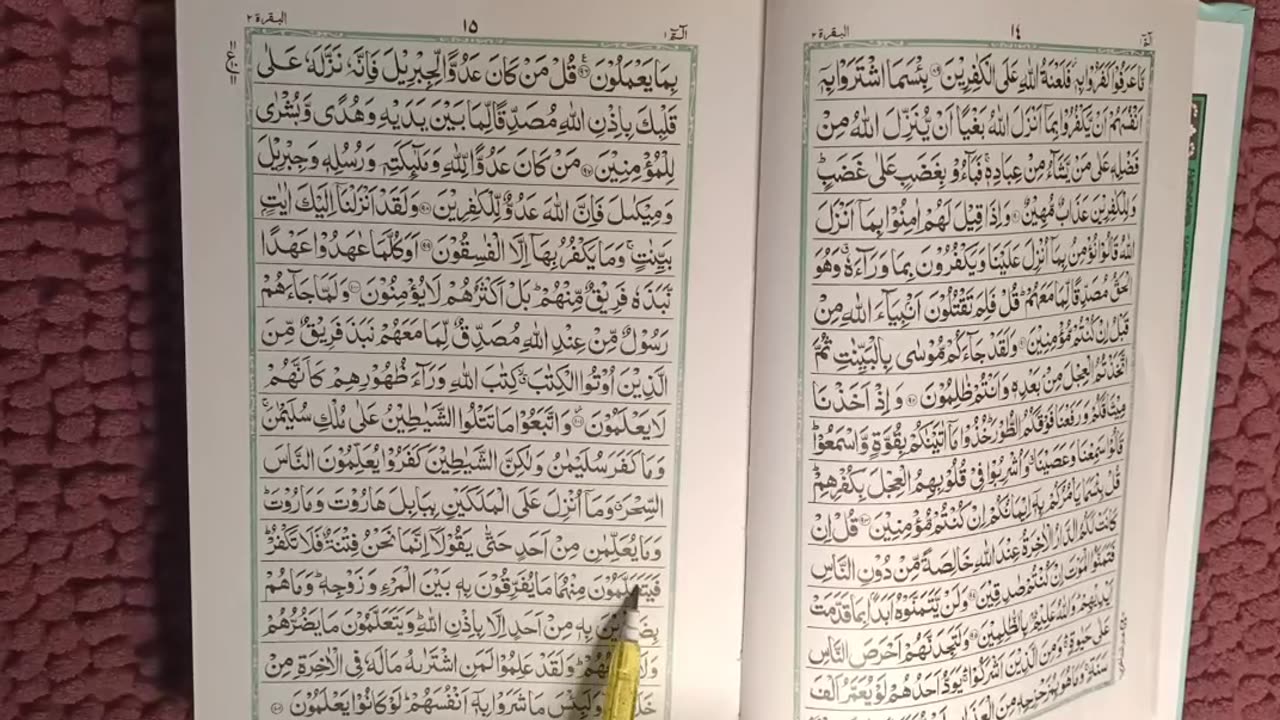 الٓمّٓ
١٤
البقرة ٢
مَّا عَرَفُوْا كَفَرُوْا بِهٖ فَلَعْنَةُ اللّٰهِ عَلَى الْكٰفِرِيْنَ ٨٩ بِئْسَمَا اشْتَرَوْا بِهٖٓ
اَنْفُسَهُمْ اَنْ يَّكْفُرُوْا بِمَآ اَنْزَلَ اللّٰهُ بَغْيًا اَنْ يُّنَزِّلَ اللّٰهُ مِنْ
فَضْلِهٖ عَلٰى مَنْ يَّشَآءُ مِنْ عِبَادِهٖ فَبَآءُوْ بِغَضَبٍ عَلٰى غَضَبٍ
وَلِلْكٰفِرِيْنَ عَذَابٌ مُّهِيْنٌ ٩٠ وَاِذَا قِيْلَ لَهُمْ اٰمِنُوْا بِمَآ اَنْزَلَ
اللّٰهُ قَالُوْا نُؤْمِنُ بِمَآ اُنْزِلَ عَلَيْنَا وَيَكْفُرُوْنَ بِمَا وَرَآءَهٗ وَهُوَ
الْحَقُّ مُصَدِّقًا لِّمَا مَعَهُمْ قُلْ فَلِمَ تَقْتُلُوْنَ اَنْۢبِيَآءَ اللّٰهِ مِنْ
قَبْلُ اِنْ كُنْتُمْ مُّؤْمِنِيْنَ ٩١ وَلَقَدْ جَآءَكُمْ مُّوْسٰى بِالْبَيِّنٰتِ ثُمَّ
اتَّخَذْتُمُ الْعِجْلَ مِنْۢ بَعْدِهٖ وَاَنْتُمْ ظٰلِمُوْنَ ٩٢ وَاِذْ اَخَذْنَا
مِيْثَاقَكُمْ وَرَفَعْنَا فَوْقَكُمُ الطُّوْرَ خُذُوْا مَآ اٰتَيْنٰكُمْ بِقُوَّةٍ وَّاسْمَعُوْا
قَالُوْا سَمِعْنَا وَعَصَيْنَا وَاُشْرِبُوْا فِيْ قُلُوْبِهِمُ الْعِجْلَ بِكُفْرِهِمْ
قُلْ بِئْسَمَا يَاْمُرُكُمْ بِهٖٓ اِيْمَانُكُمْ اِنْ كُنْتُمْ مُّؤْمِنِيْنَ ٩٣ قُلْ اِنْ
كَانَتْ لَكُمُ الدَّارُ الْاٰخِرَةُ عِنْدَ اللّٰهِ خَالِصَةً مِّنْ دُوْنِ النَّاسِ
فَتَمَنَّوُا الْمَوْتَ اِنْ كُنْتُمْ صٰدِقِيْنَ ٩٤ وَلَنْ يَّتَمَنَّوْهُ اَبَدًۢا بِمَا قَدَّمَتْ
اَيْدِيْهِمْ وَاللّٰهُ عَلِيْمٌۢ بِالظّٰلِمِيْنَ ٩٥ وَلَتَجِدَنَّهُمْ اَحْرَصَ النَّاسِ
عَلٰى حَيٰوةٍ وَمِنَ الَّذِيْنَ اَشْرَكُوْا يَوَدُّ اَحَدُهُمْ لَوْ يُعَمَّرُ اَلْفَ
سَنَةٍ وَمَا هُوَ بِمُزَحْزِحِهٖ مِنَ الْعَذَابِ
الٓمّٓ ١
١٥
البقرة ٢
بِمَا يَعْمَلُوْنَ ٩٦ قُلْ مَنْ كَانَ عَدُوًّا لِّجِبْرِيْلَ فَاِنَّهٗ نَزَّلَهٗ عَلٰى
قَلْبِكَ بِاِذْنِ اللّٰهِ مُصَدِّقًا لِّمَا بَيْنَ يَدَيْهِ وَهُدًى وَّبُشْرٰى
لِلْمُؤْمِنِيْنَ ٩٧ مَنْ كَانَ عَدُوًّا لِّلّٰهِ وَمَلٰٓئِكَتِهٖ وَرُسُلِهٖ وَجِبْرِيْلَ
وَمِيْكٰىلَ فَاِنَّ اللّٰهَ عَدُوٌّ لِّلْكٰفِرِيْنَ ٩٨ وَلَقَدْ اَنْزَلْنَآ اِلَيْكَ اٰيٰتٍۢ
بَيِّنٰتٍ وَمَا يَكْفُرُ بِهَآ اِلَّا الْفٰسِقُوْنَ ٩٩ اَوَكُلَّمَا عٰهَدُوْا عَهْدًا
نَّبَذَهٗ فَرِيْقٌ مِّنْهُمْ بَلْ اَكْثَرُهُمْ لَا يُؤْمِنُوْنَ ١٠٠ وَلَمَّا جَآءَهُمْ
رَسُوْلٌ مِّنْ عِنْدِ اللّٰهِ مُصَدِّقٌ لِّمَا مَعَهُمْ نَبَذَ فَرِيْقٌ مِّنَ
الَّذِيْنَ اُوْتُوا الْكِتٰبَ كِتٰبَ اللّٰهِ وَرَآءَ ظُهُوْرِهِمْ كَاَنَّهُمْ
لَا يَعْلَمُوْنَ ١٠١ وَاتَّبَعُوْا مَا تَتْلُوا الشَّيٰطِيْنُ عَلٰى مُلْكِ سُلَيْمٰنَ
وَمَا كَفَرَ سُلَيْمٰنُ وَلٰكِنَّ الشَّيٰطِيْنَ كَفَرُوْا يُعَلِّمُوْنَ النَّاسَ
السِّحْرَ وَمَآ اُنْزِلَ عَلَى الْمَلَكَيْنِ بِبَابِلَ هَارُوْتَ وَمَارُوْتَ
وَمَا يُعَلِّمٰنِ مِنْ اَحَدٍ حَتّٰى يَقُوْلَآ اِنَّمَا نَحْنُ فِتْنَةٌ فَلَا تَكْفُرْ
فَيَتَعَلَّمُوْنَ مِنْهُمَا مَا يُفَرِّقُوْنَ بِهٖ بَيْنَ الْمَرْءِ وَزَوْجِهٖ وَمَا هُمْ
بِهٖ مِنْ اَحَدٍ اِلَّا بِاِذْنِ اللّٰهِ وَيَتَعَلَّمُوْنَ مَا يَضُرُّهُمْ
وَلَقَدْ عَلِمُوْا لَمَنِ اشْتَرٰىهُ مَا لَهٗ فِي الْاٰخِرَةِ مِنْ
وَلَبِئْسَ مَا شَرَوْا بِهٖٓ اَنْفُسَهُمْ لَوْ كَانُوْا يَعْلَمُوْنَ ١٠٢